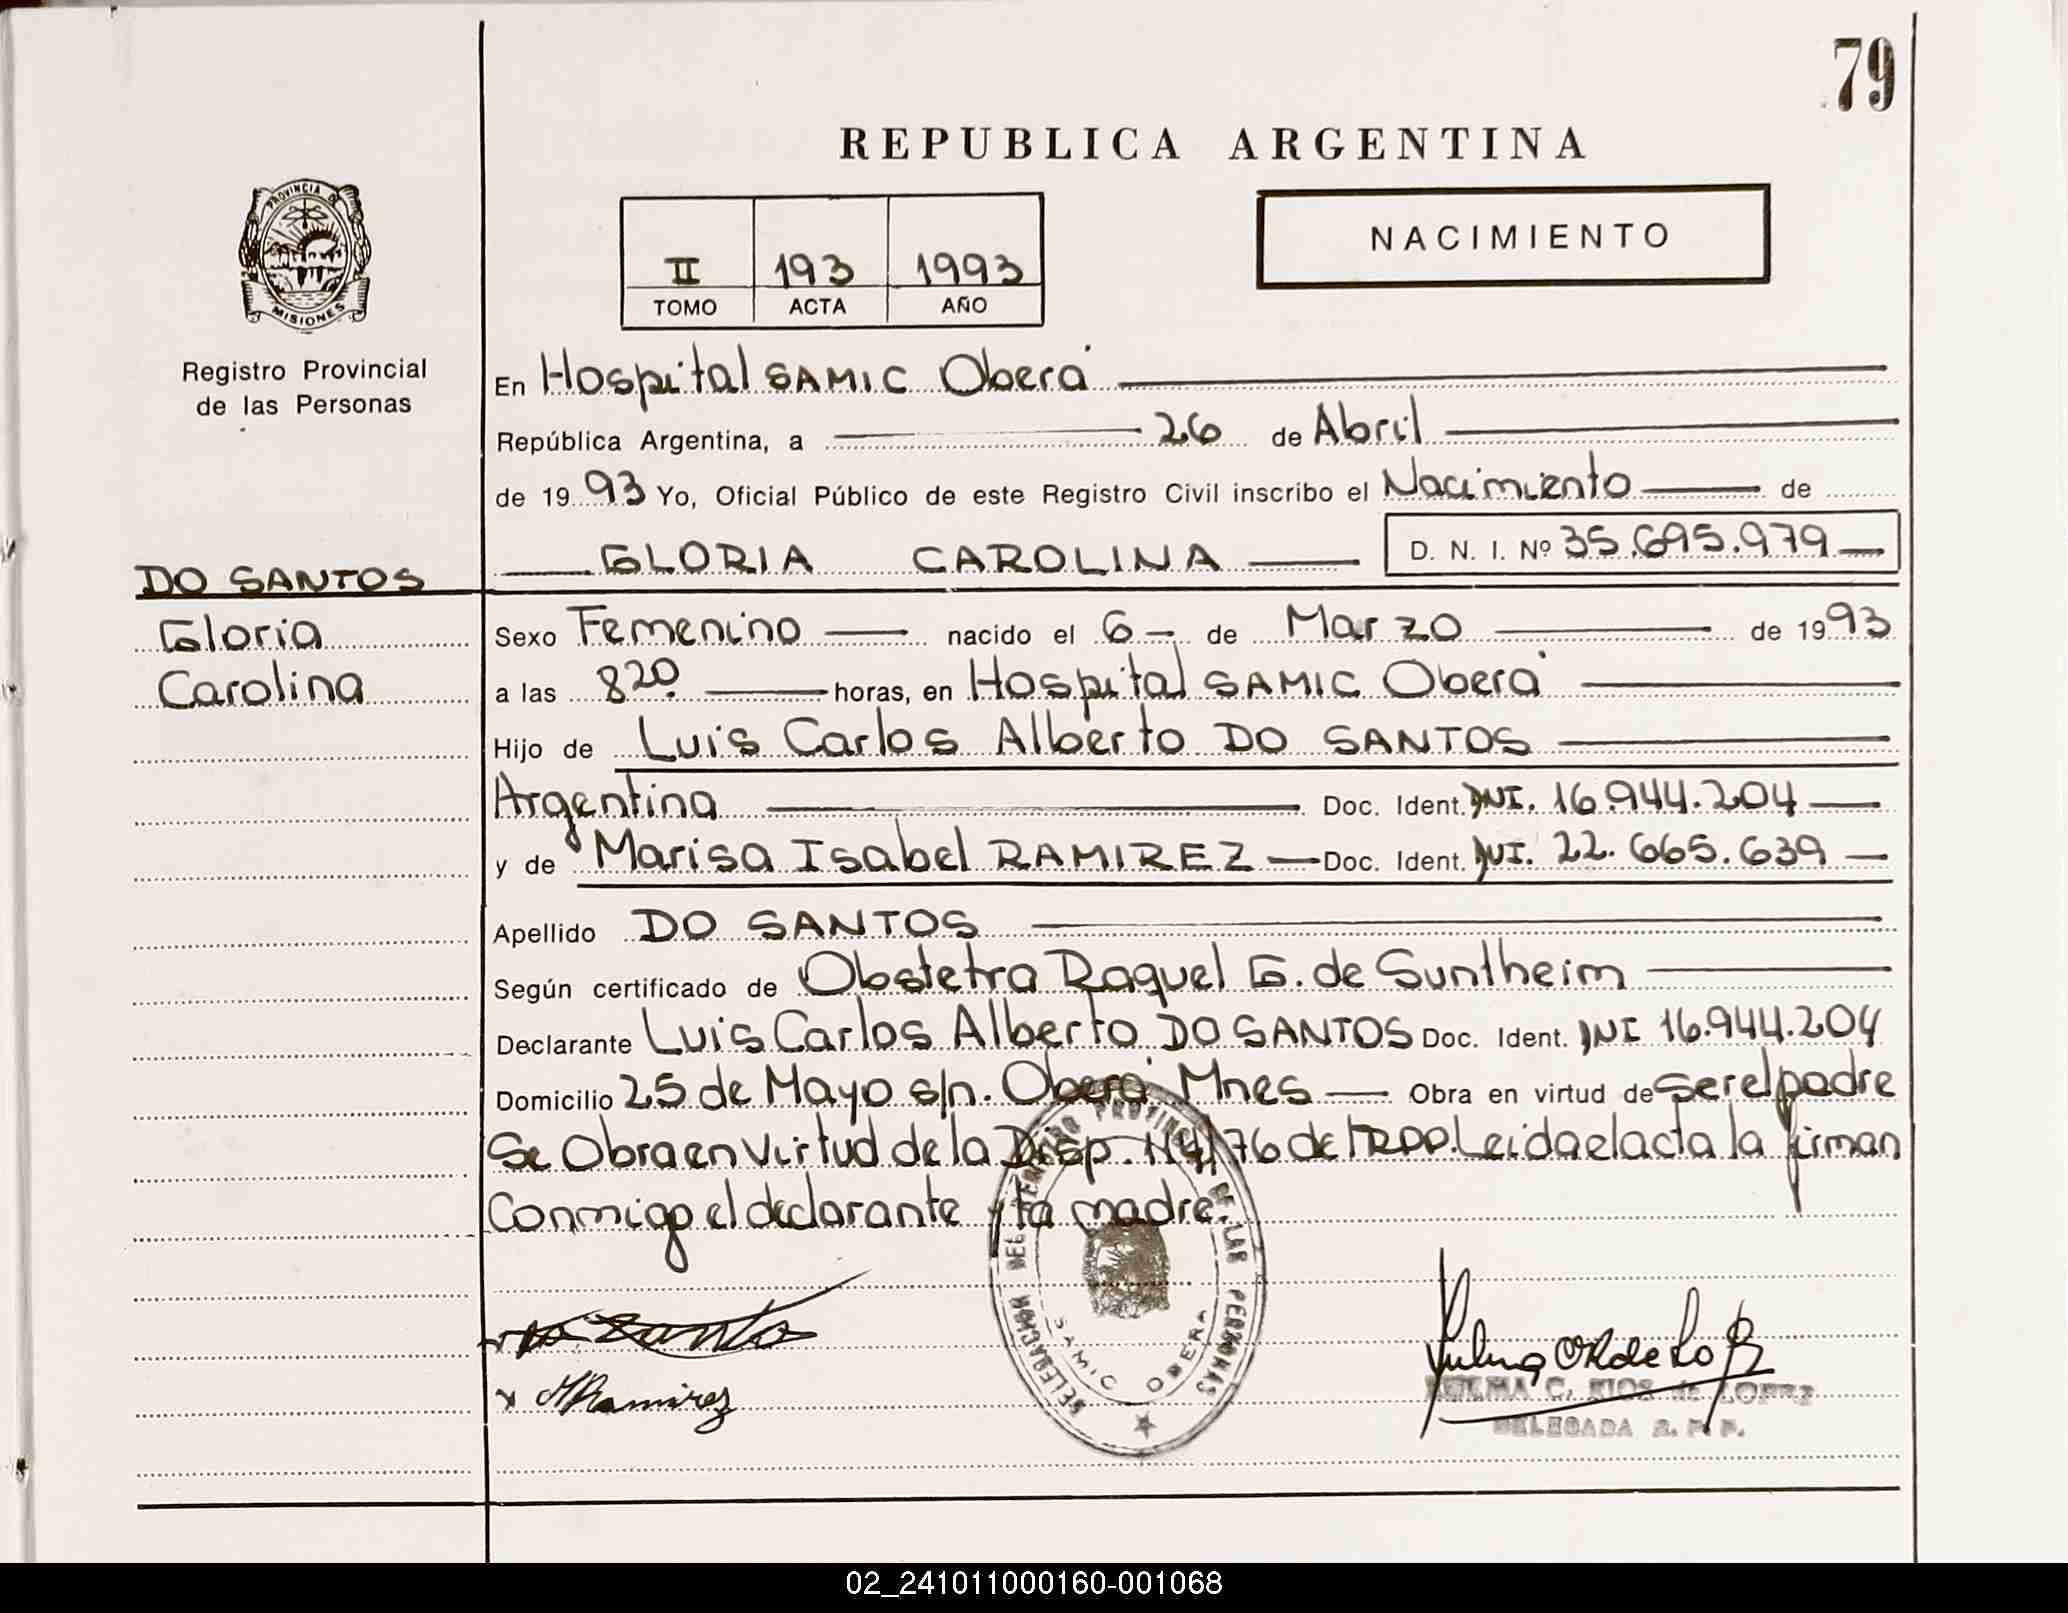 79
REPUBLICA ARGENTINA
PROVINCIA DE
MISIONES
Registro Provincial
de las Personas
II 193 1993
TOMO ACTA AÑO
NACIMIENTO
En Hospital SAMIC Oberá
República Argentina, a 26 de Abril
de 1993 Yo, Oficial Público de este Registro Civil inscribo el Nacimiento de
GLORIA CAROLINA D. N. I. Nº 35.695.979
DO SANTOS
Gloria
Carolina
Sexo Femenino nacido el 6 de Marzo de 1993
a las 8 20 horas, en Hospital SAMIC Oberá
Hijo de Luis Carlos Alberto DO SANTOS
Argentina Doc. Ident. DNI. 16.944.204
y de Marisa Isabel RAMIREZ Doc. Ident. DNI. 22.665.639
Apellido DO SANTOS
Según certificado de Obstetra Raquel G. de Suntheim
Declarante Luis Carlos Alberto DO SANTOS Doc. Ident. DNI 16.944.204
Domicilio 25 de Mayo s/n. Oberá Mnes Obra en virtud de ser el padre
Se Obra en Virtud de la Disp. Nº 4/76 del RPP. Leida el acta la firman
Conmigo el declarante y la madre.
Do Santos
x MRamirez
DELEGACION DEL REGISTRO PROVINCIAL DE LAS PERSONAS
SAMIC OBERA
C. RIOS de LOPEZ
DELEGADA R. P. P.
02_241011000160-001068